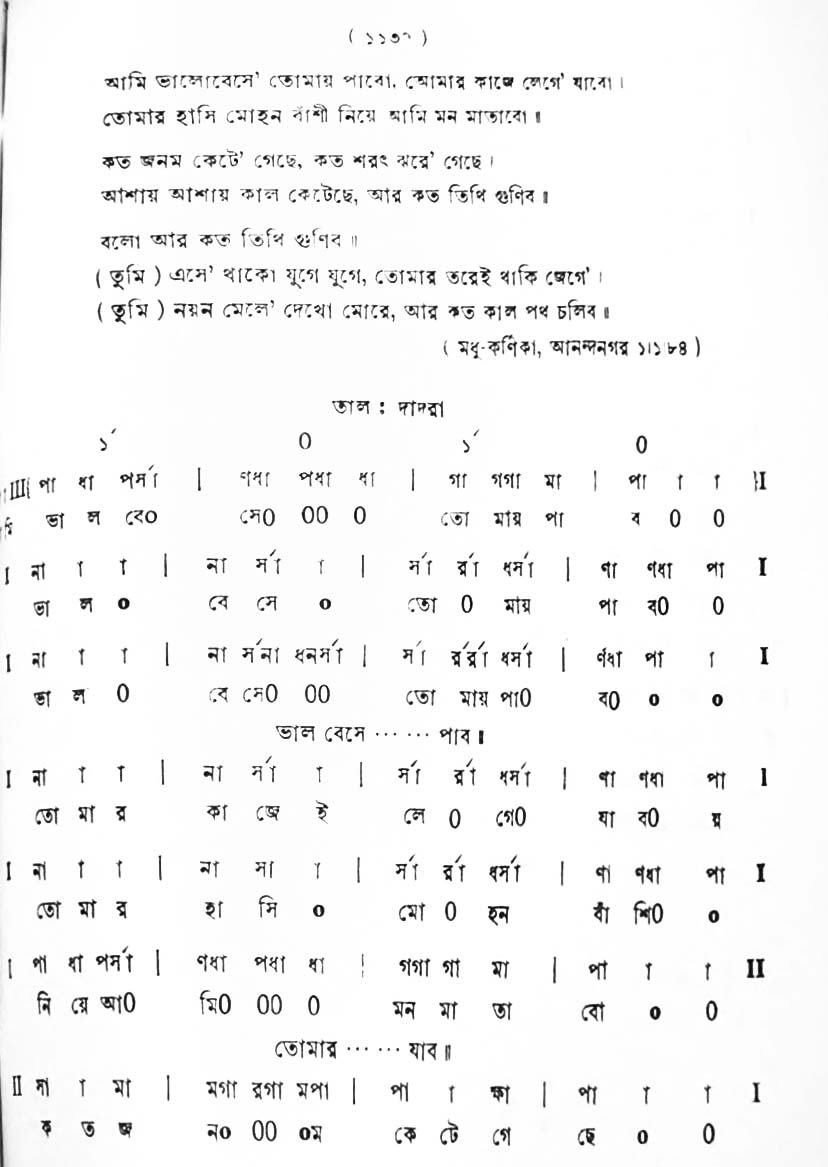 ( ১১৩৭ )
আমি ভালোবেসে' তোমায় পাবো, তোমার কাজে লেগে' যাবো।
তোমার হাসি মোহন বাঁশী নিয়ে আমি মন মাতাবো॥
কত জনম কেটে' গেছে, কত শরৎ ঝরে' গেছে।
আশায় আশায় কাল কেটেছে, আর কত তিথি গুণিব॥
বলো আর কত তিথি গুণিব॥
( তুমি ) এসে' থাকো যুগে যুগে, তোমার তরেই থাকি জেগে'।
( তুমি ) নয়ন মেলে' দেখো মোরে, আর কত কাল পথ চলিব॥
( মধু-কর্ণিকা, আনন্দনগর ১।১৮৪ )
তাল : দাদরা
১´ 0 ১´ 0
III{ পা ধা পর্সা | ণধা পধা ধা | গা গগা মা | পা া া }I
ভা ল বে০ সে0 00 0 তো মায় পা ব 0 0
I না া া | না র্সা া | র্সা র্রা ধর্সা | ণা ণধা পা I
ভা ল ০ বে সে ০ তো 0 মায় পা ব0 0
I না া া | না র্সনা ধনর্সা | র্সা র্রর্রা ধর্সা | র্ণধা পা া I
ভা ল 0 বে সে0 00 তো মায় পা0 ব0 ০ ০
ভাল বেসে ⋯ ⋯ পাব॥
I না া া | না র্সা া | র্সা র্রা ধর্সা | ণা ণধা পা I
তো মা র কা জে ই লে 0 গে0 যা ব0 য়
I না া া | না সা া | র্সা র্রা ধর্সা | ণা ণধা পা I
তো মা র হা সি ০ মো 0 হন বাঁ শি0 ০
I পা ধা পর্সা | ণধা পধা ধা | গগা গা মা | পা া া II
নি য়ে আ0 মি0 00 0 মন মা তা বো ০ 0
তোমার ⋯ ⋯ যাব॥
II সা া মা | মগা রগা মপা | পা া ক্ষা | পা া া I
ক ত জ ন০ 00 ০ম কে টে গে ছে ০ 0